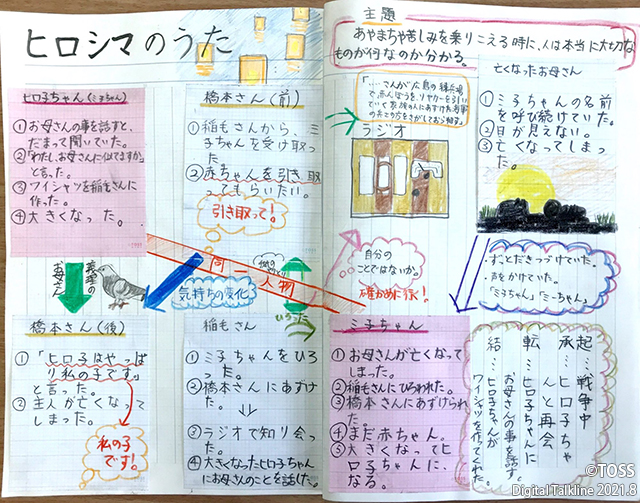 ヒロシマのうた
ヒロ子ちゃん(ミ子ちゃん)
①お母さんの事を話すと、
だまって聞いていた。
②「わたし、お母さんに似てますか」
と言った。
③ワイシャツを稲毛さんに
作った。
④大きくなった。
橋本さん(前)
①稲毛さんから、ミ
子ちゃんを受け取っ
た。
②赤ちゃんを引き取
ってもらいたい。
引き取って!
同一人物
気持ちの変化
義理の
お母さん
橋本さん(後)
①「ヒロ子はやっぱ
り私の子です」
と言った。
②主人が亡くなって
しまった。
私の子
です!
稲毛さん
①ミ子ちゃんをひろ
った。
②橋本さんにあずけ
た。
③ラジオで知り合っ
た。
④大きくなったヒロ子ちゃん
にお母さんのことを話した。
ひろった
主題
あやまちや苦しみを乗りこえる時に、人は本当に大切な
ものが何なのか分かる。
「…さんが広島の練兵場
で、赤んぼうを、リヤカーを引いて
いく家族の人にあずけた兵隊
ラジオ
亡くなったお母さん
①ミ子ちゃんの名前
を呼び続けていた。
②目が見えない。
③亡くなってしまっ
た。
自分の
ことではないか。
確かめに行く!
・ずっとだきつづけていた。
・声をかけていた。
・「ミ子ちゃん」「ミーちゃん」
ミ子ちゃん
①お母さんが亡くなって
しまった。
②稲毛さんにひろわれた。
③橋本さんにあずけられ
た。
④まだ赤ちゃん。
⑤大きくなってヒ
ロ子ちゃんに、
なる。
起…戦争中
承…ヒロ子ちゃ
んと再会
転…ヒロ子ちゃんに
お母さんの事を話す。
結…ヒロ子ちゃんが
ワイシャツを作ってくれた。
©TOSS
Digital Talkline 2021.8